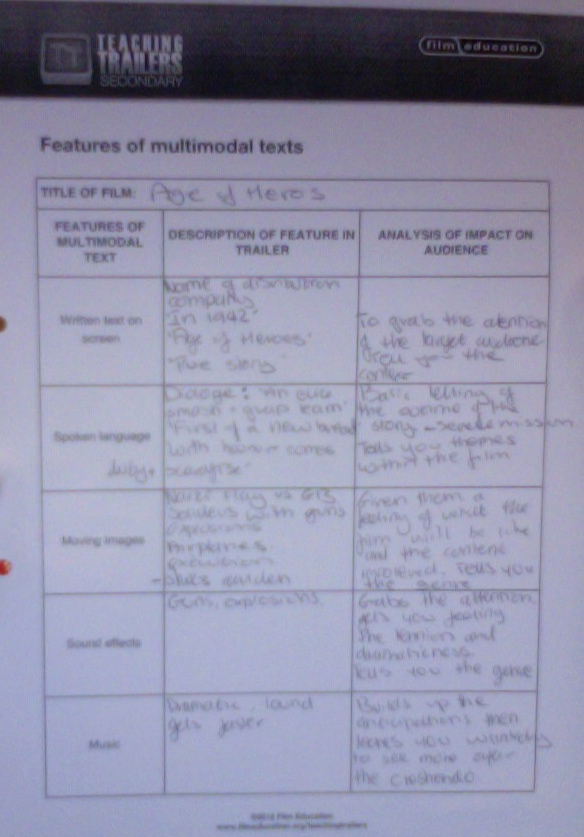 TEACHING
TRAILERS
SECONDARY
film education
Features of multimodal texts
TITLE OF FILM: Age of Heros
FEATURES OF
MULTIMODAL
TEXT
DESCRIPTION OF FEATURE IN
TRAILER
ANALYSIS OF IMPACT ON
AUDIENCE
Written text on
screen
Name of distribution
company
"In 1942"
"Age of Heroes"
"True story"
To grab the atention
of the target audience
you the
context
Spoken language
Dialoge: "An
smash + grab team"
"First of a new breed"
with honour comes
duty +
story
Tells you themes
within the film
Moving images
Flag vs
with guns
explosions
Airplanes
Given them a
feeling of what the
film will be like
and the content
involved. Tells you
the genre
Sound effects
Guns, explosions.
Grabs the attention
gets you feeling
the tension and
dramaticness.
tells you the genre
Music
Dramatic, lound
gets faster
Builds up the
anticipations then
leaves you
to see more after
the creshendo.
©2012 Film Education
www.filmeducation.org/teachingtrailers